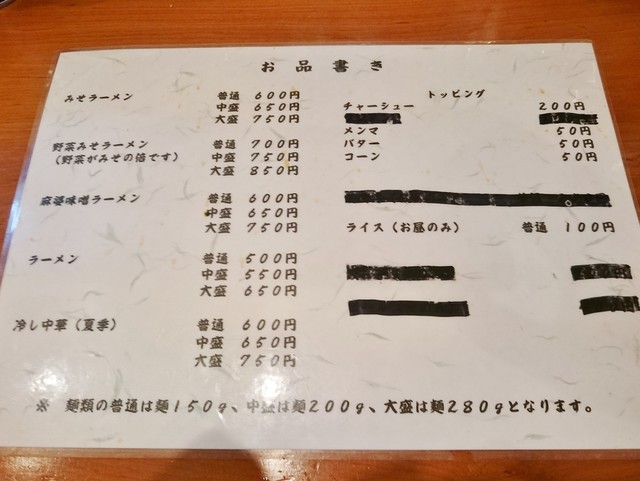 お品書き
みそラーメン 普通 600円
中盛 650円
大盛 750円
野菜みそラーメン 普通 700円
（野菜がみその倍です） 中盛 750円
大盛 850円
麻婆味噌ラーメン 普通 600円
中盛 650円
大盛 750円
ラーメン 普通 500円
中盛 550円
大盛 650円
冷し中華（夏季） 普通 600円
中盛 650円
大盛 750円
トッピング
チャーシュー 200円
メンマ 50円
バター 50円
コーン 50円
ライス（お昼のみ） 普通 100円
※ 麺類の普通は麺150g、中盛は麺200g、大盛は麺280gとなります。